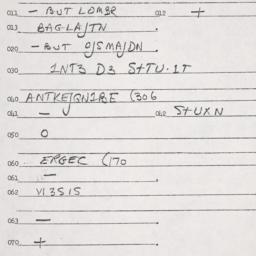 011 — BUT LOMBR 012 +
013 BAG-LAJTN
020 — BUT OJSMAJDN
030 1NT3 D3 S+TU.1T
040 ANTKEJQN1BE (306
041 — 042 S+UXN
050 O
060 ERGEC (170
061 —
062 V13S15
063 —
070 +